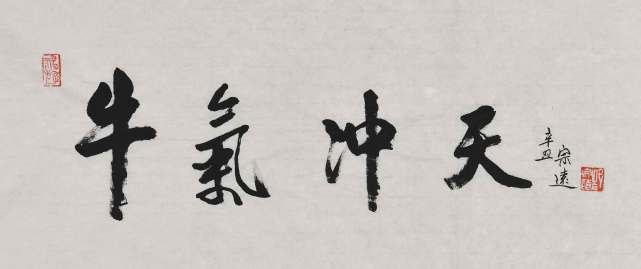 牛氣冲天
辛丑
宗遠